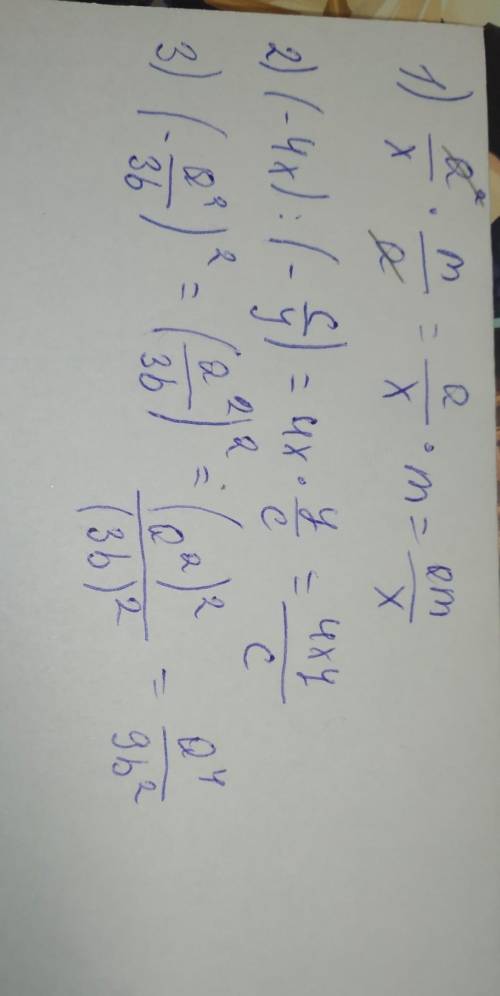 1) a²/x · m/a = a/x · m = am/x
2) (-4x) : (-c/y) = 4x · y/c = 4xy/c
3) (-a²/3b)² = (a²/3b)² = (a²)²/(3b)² = a⁴/9b²